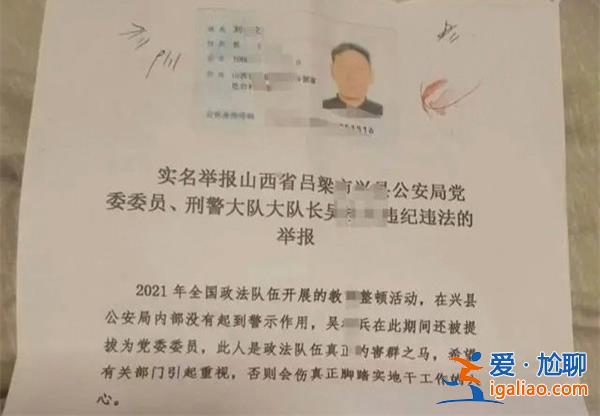 姓名 刘 文
实名举报山西省吕梁市兴县公安局党
委委员、刑警大队大队长吴 违纪违法的
举报
2021年全国政法队伍开展的教 整顿活动，在兴县
公安局内部没有起到警示作用，吴 兵在此期间还被提
拔为党委委员，此人是政法队伍真 的害群之马，希望
有关部门引起重视，否则会伤真正脚踏实地干工作的
心。
爱·尬聊
igaliao.com